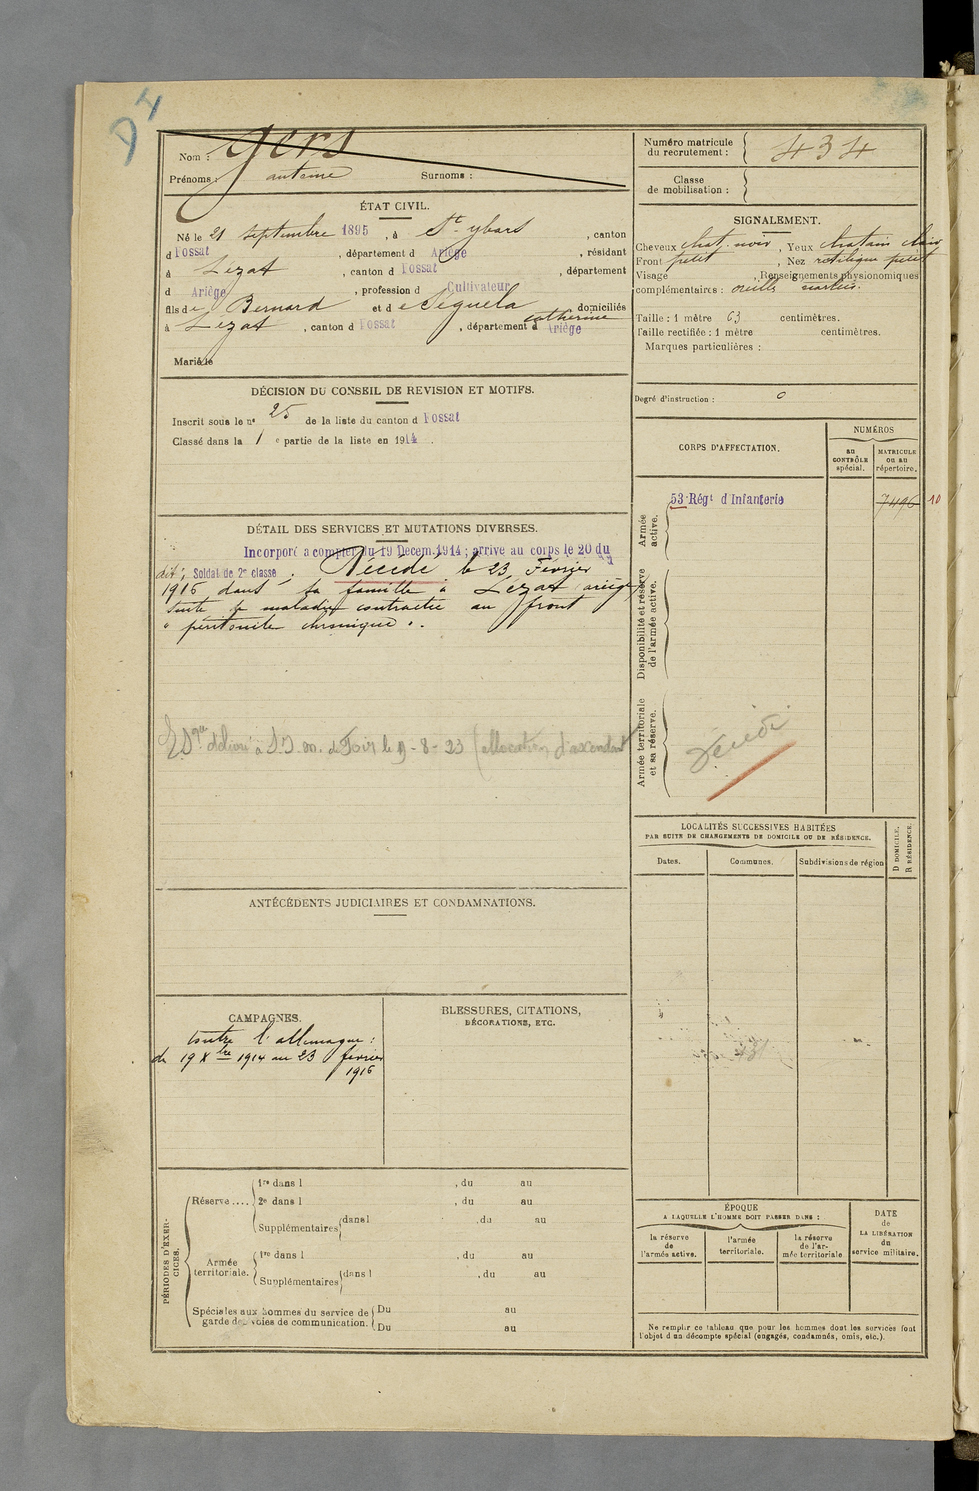 D4
Nom : Gers
Prénoms : antoine Surnoms :
Numéro matricule
du recrutement : 434
Classe
de mobilisation :
ÉTAT CIVIL.
Né le 21 septembre 1895, à St-ybars, canton
d Fossat, département d Ariège, résidant
à Lézat, canton d Fossat, département
d Ariège, profession d Cultivateur
fils de Bernard et de Séguela catherine domiciliés
à Lézat, canton d Fossat, département d Ariège
Marié le
SIGNALEMENT.
Cheveux chat. noir, Yeux chatain clair
Front petit, Nez rectiligne petit
Visage , Renseignements physionomiques
complémentaires : oreille écartées.
Taille : 1 mètre 63 centimètres.
Taille rectifiée : 1 mètre centimètres.
Marques particulières :
Degré d'instruction : 0
DÉCISION DU CONSEIL DE REVISION ET MOTIFS.
Inscrit sous le nº 25 de la liste du canton d Fossat
Classé dans la 1 e partie de la liste en 1914.
CORPS D'AFFECTATION.
NUMÉROS
au CONTRÔLE spécial.
MATRICULE ou au répertoire.
Armée active.
53 Régt d'Infanterie 7496 10
Disponibilité et réserve de l'armée active.
Armée territoriale et sa réserve.
Décédé
DÉTAIL DES SERVICES ET MUTATIONS DIVERSES.
Incorporé à compter du 19 Décem. 1914 ; arrivé au corps le 20 du
dit ; Soldat de 2e classe. Décédé le 23 Février
1916 dans sa famille à Lézat ariège
suite de maladie contractée au front
" péritonite chronique ".
délivré à de Foix le 9-8-23 (allocation d'ascendant
ANTÉCÉDENTS JUDICIAIRES ET CONDAMNATIONS.
LOCALITÉS SUCCESSIVES HABITÉES
PAR SUITE DE CHANGEMENTS DE DOMICILE OU DE RÉSIDENCE.
Dates. Communes. Subdivisions de région
D DOMICILE.
R RÉSIDENCE.
CAMPAGNES.
contre l'allemagne :
du 19 Xbre 1914 au 23 février
1916
BLESSURES, CITATIONS,
DÉCORATIONS, ETC.
PÉRIODES D'EXERCICES.
Réserve....
1re dans l , du au
2e dans l , du au
Supplémentaires dans l , du au
Armée territoriale.
1re dans l , du au
Supplémentaires dans l , du au
Spéciales aux hommes du service de
garde des voies de communication.
Du au
Du au
ÉPOQUE
A LAQUELLE L'HOMME DOIT PASSER DANS :
la réserve
de
l'armée active.
l'armée
territoriale.
la réserve
de l'ar-
mée territoriale
DATE
de
LA LIBÉRATION
du
service militaire.
Ne remplir ce tableau que pour les hommes dont les services font
l'objet d'un décompte spécial (engagés, condamnés, omis, etc.).